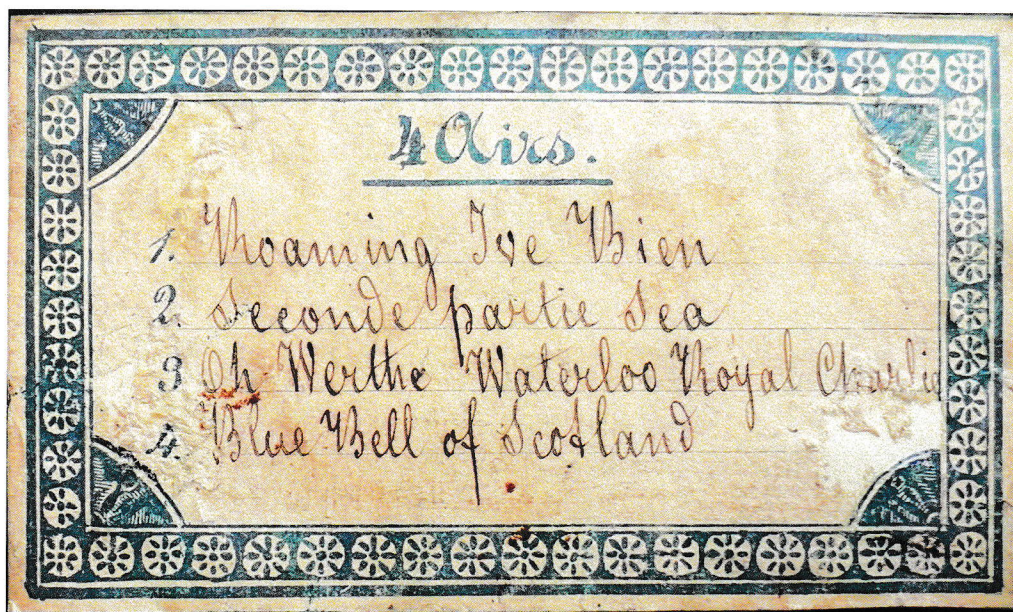 4 Airs.
1. Roaming Ive Bien
2. Seconde partie Sea
3 Oh Werthe Waterloo Royal Charlie
4. Blue Bell of Scotland